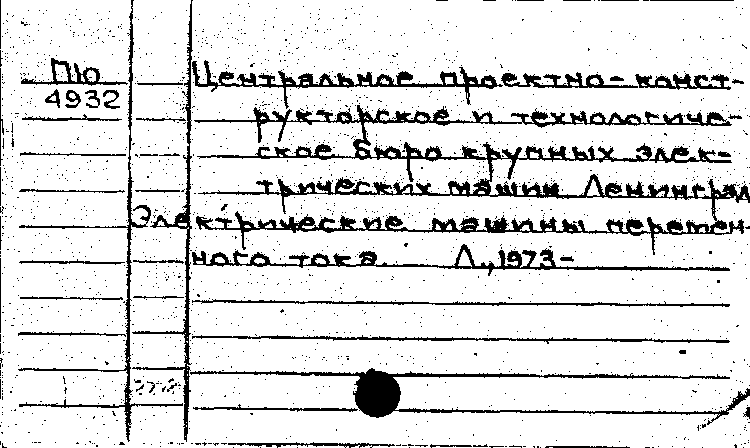 Пю
4932
Центральное проектно-конст-
рукторское и технологиче-
ское бюро крупных элек-
трических машин Ленинград
Электрические машины перемен-
ного тока. Л., 1973-